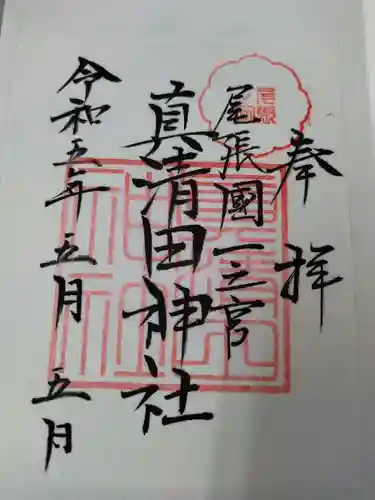 奉拝
尾張國一之宮
真清田神社
令和五年五月五月